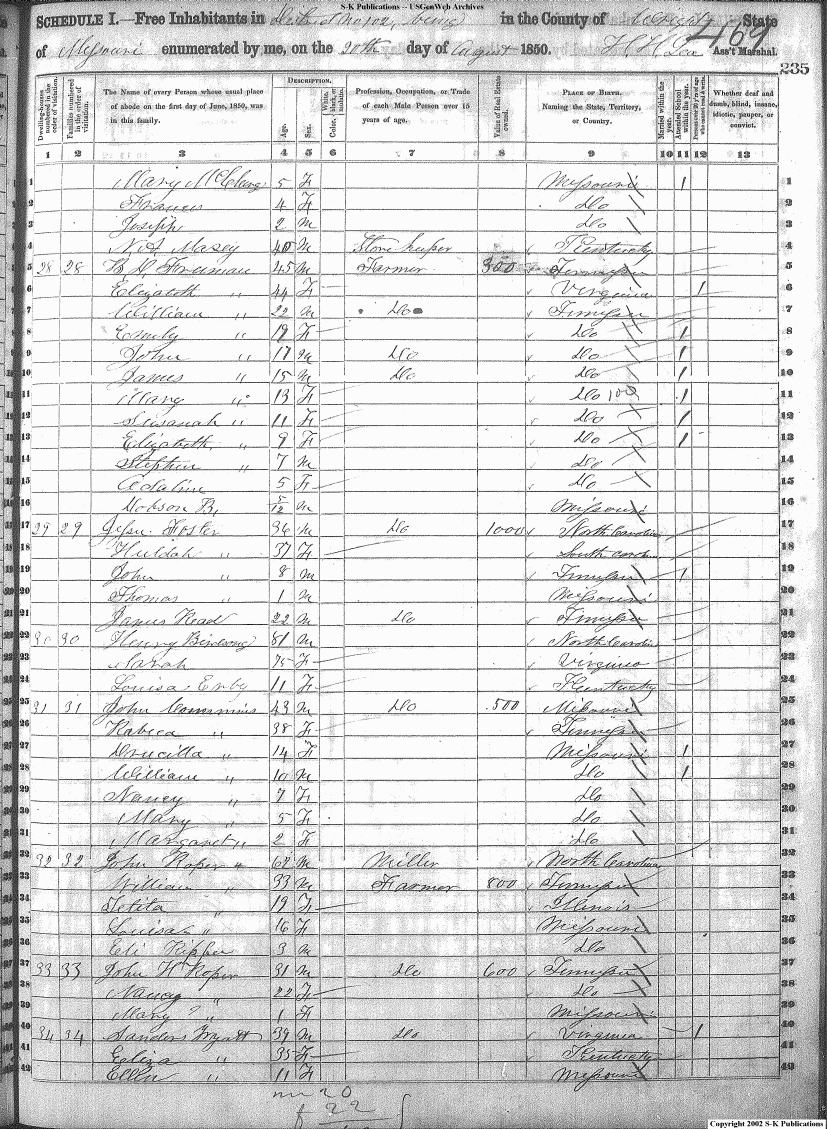 S-K Publications -- USGenWeb Archives
SCHEDULE I.—Free Inhabitants in in the County of State
of Missouri enumerated by me, on the 20th day of August 1850. Ass't Marshal.
469
235
Dwelling-houses numbered in the order of visitation.
Families numbered in the order of visitation.
The Name of every Person whose usual place of abode on the first day of June, 1850, was in this family.
DESCRIPTION.
Age.
Sex.
Color, White, black, or mulatto.
Profession, Occupation, or Trade of each Male Person over 15 years of age.
Value of Real Estate owned.
PLACE OF BIRTH. Naming the State, Territory, or Country.
Married within the year.
Attended School within the year.
Persons over 20 y'rs of age who cannot read & write.
Whether deaf and dumb, blind, insane, idiotic, pauper, or convict.
1 2 3 4 5 6 7 8 9 10 11 12 13
1 Mary 5 F Missouri 1 1
2 Frances 4 F Do 2
3 Joseph 2 M Do 3
4 Massey 40 M Store keeper Kentucky 4
5 28 28 Freeman 45 M Farmer 300 Tennessee 5
6 Elizabeth " 44 F Virginia 1 6
7 William " 22 M Do Tennessee 7
8 Emily " 19 F Do 1 8
9 John " 17 M Do Do 1 9
10 James " 15 M Do Do 1 10
11 Mary " 13 F Do 1 11
12 Susanah " 11 F Do 1 12
13 Elizabeth " 9 F Do 1 13
14 Stephen " 7 M Do 14
15 Adaline 5 F Do 15
16 Dobson B. 5/12 M Missouri 16
17 29 29 Foster 36 M Do 1000 North Carolina 17
18 Huldah " 37 F South Carolina 18
19 John " 8 M Tennessee 1 19
20 Thomas " 1 M Missouri 20
21 James Read 22 M Do Tennessee 21
22 30 30 Henry Birdsong 81 M North Carolina 22
23 Sarah 75 F Virginia 23
24 Louisa 11 F Kentucky 24
25 31 31 John Cummins 43 M Do 500 Missouri 25
26 Rabeca " 38 F Tennessee 26
27 Drucilla " 14 F Missouri 1 27
28 William " 10 M Do 1 28
29 Nancy " 7 F Do 29
30 Mary " 5 F Do 30
31 Margaret " 2 F Do 31
32 32 32 John Roper " M Miller North Carolina 32
33 William " 33 M Farmer 800 Tennessee 33
34 Letita " 19 F Illinois 34
35 Louisah " 16 F Missouri 35
36 Eli 3 M Do 36
37 33 33 John H Roper 31 M Do 600 Tennessee 37
38 Nancy " 22 F Do 38
39 Mary " 1 F Missouri 39
40 34 34 Sanders Wyatt 39 M Do Virginia 1 40
41 Eliza " 35 F Kentucky 41
42 Ellen " 11 F Missouri 42
m 20
f 22
Copyright 2002 S-K Publications